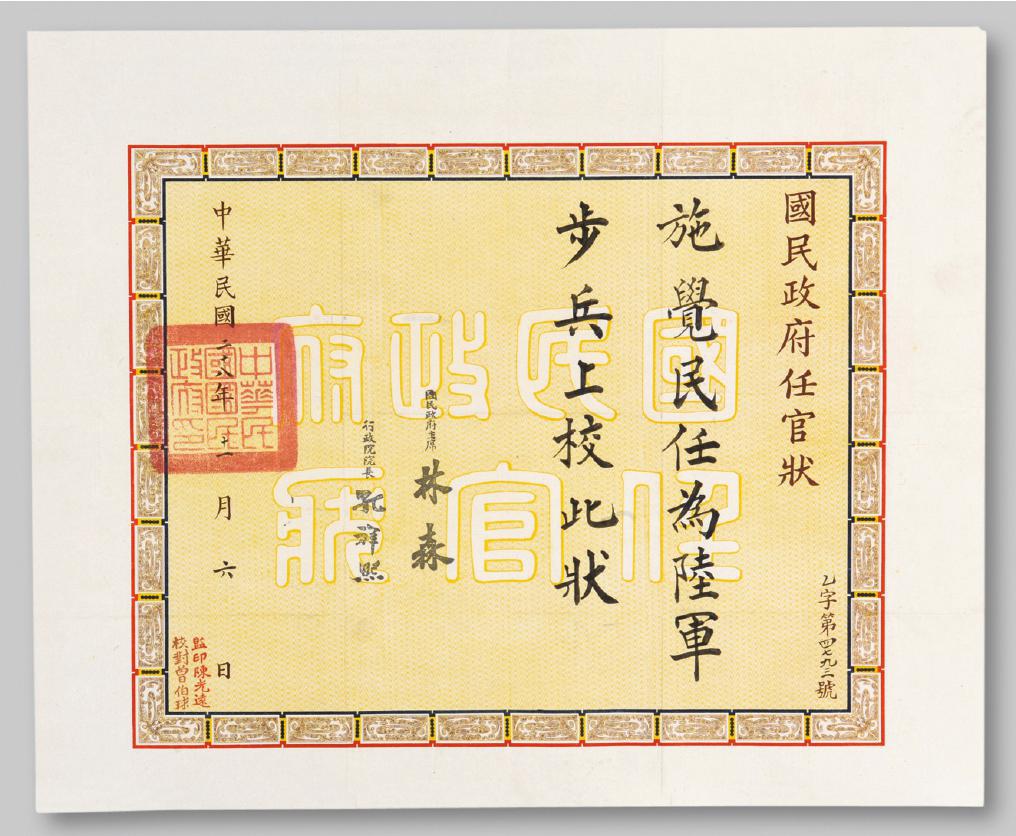 國民政府任官狀
乙字第四七九三號
施覺民任為陸軍
步兵上校此狀
國民政府主席 林森
行政院院長 孔祥熙
中華民國二十八年十一月六日
監印陳光遠
校對曾伯球
國民政府
任官狀
中華民國國民政府印